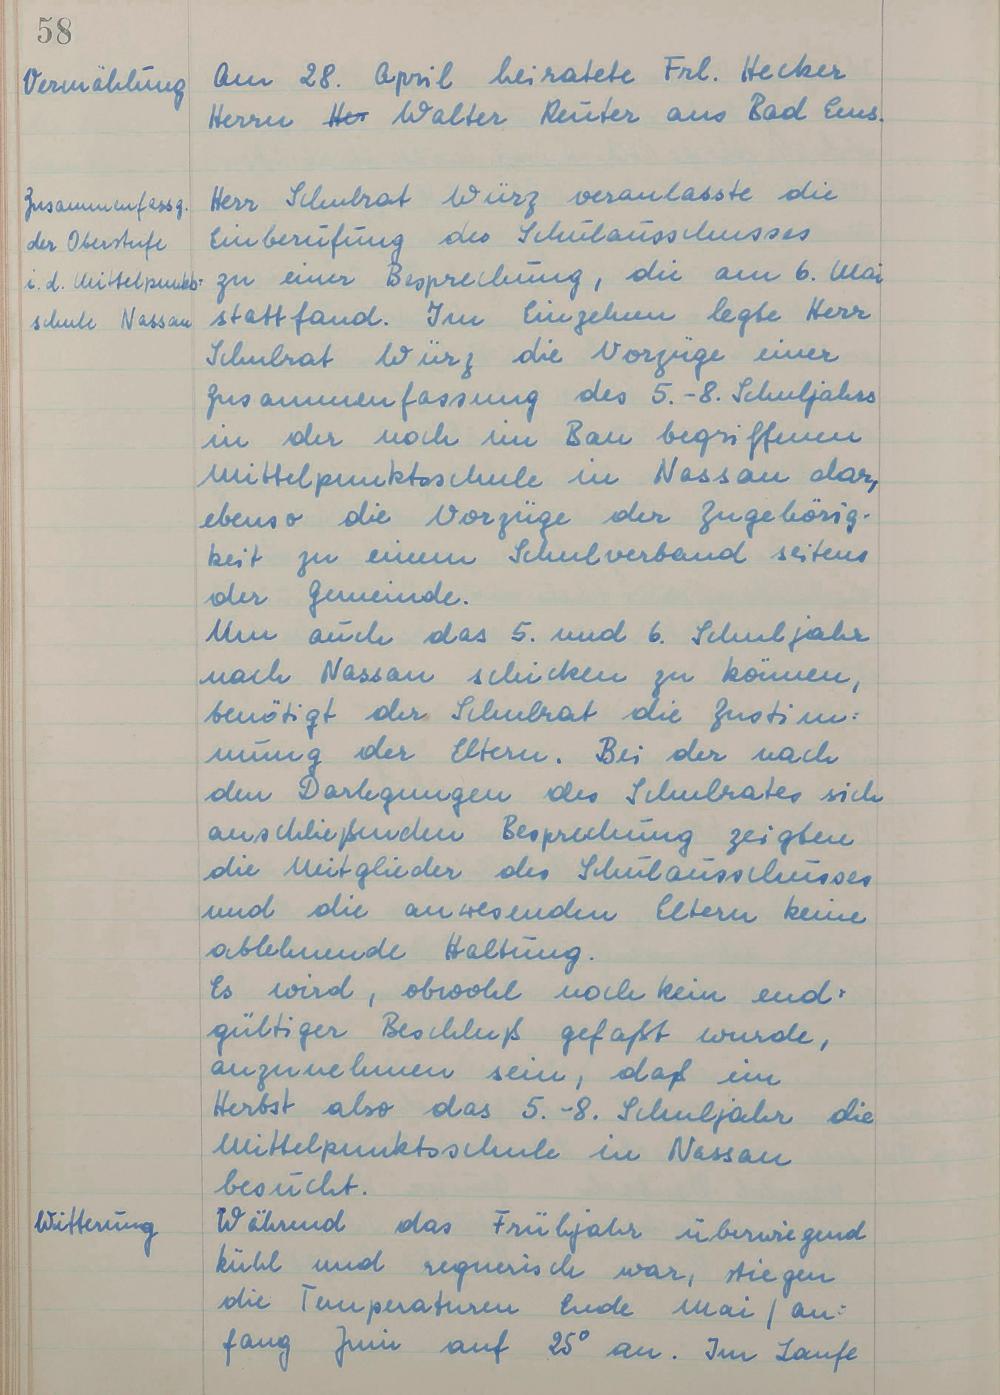 58
Vermählung
Am 28. April heiratete Frl. Hecker
Herrn Her Walter Reuter aus Bad Ems.
Zusammenfassg.
der Oberstufe
i. d. Mittelpunkts-
schule Nassau
Herr Schulrat Würz veranlasste die
Einberufung des Schulausschusses
zu einer Besprechung, die am 6. Mai
stattfand. Im Einzelnen legte Herr
Schulrat Würz die Vorzüge einer
Zusammenfassung des 5.-8. Schuljahrs
in der noch im Bau begriffenen
Mittelpunktsschule in Nassau dar,
ebenso die Vorzüge der Zugehörig-
keit zu einem Schulverband seitens
der Gemeinde.
Um auch das 5. und 6. Schuljahr
nach Nassau schicken zu können,
benötigt der Schulrat die Zustim-
mung der Eltern. Bei der nach
den Darlegungen des Schulrates sich
anschließenden Besprechung zeigten
die Mitglieder des Schulausschusses
und die anwesenden Eltern keine
ablehnende Haltung.
Es wird, obwohl noch kein end-
gültiger Beschluß gefaßt wurde,
anzunehmen sein, daß im
Herbst also das 5.-8. Schuljahr die
Mittelpunktsschule in Nassau
besucht.
Witterung
Während das Frühjahr überwiegend
kühl und regnerisch war, stiegen
die Temperaturen Ende Mai / an-
fang Juni auf 25° an. Im Laufe